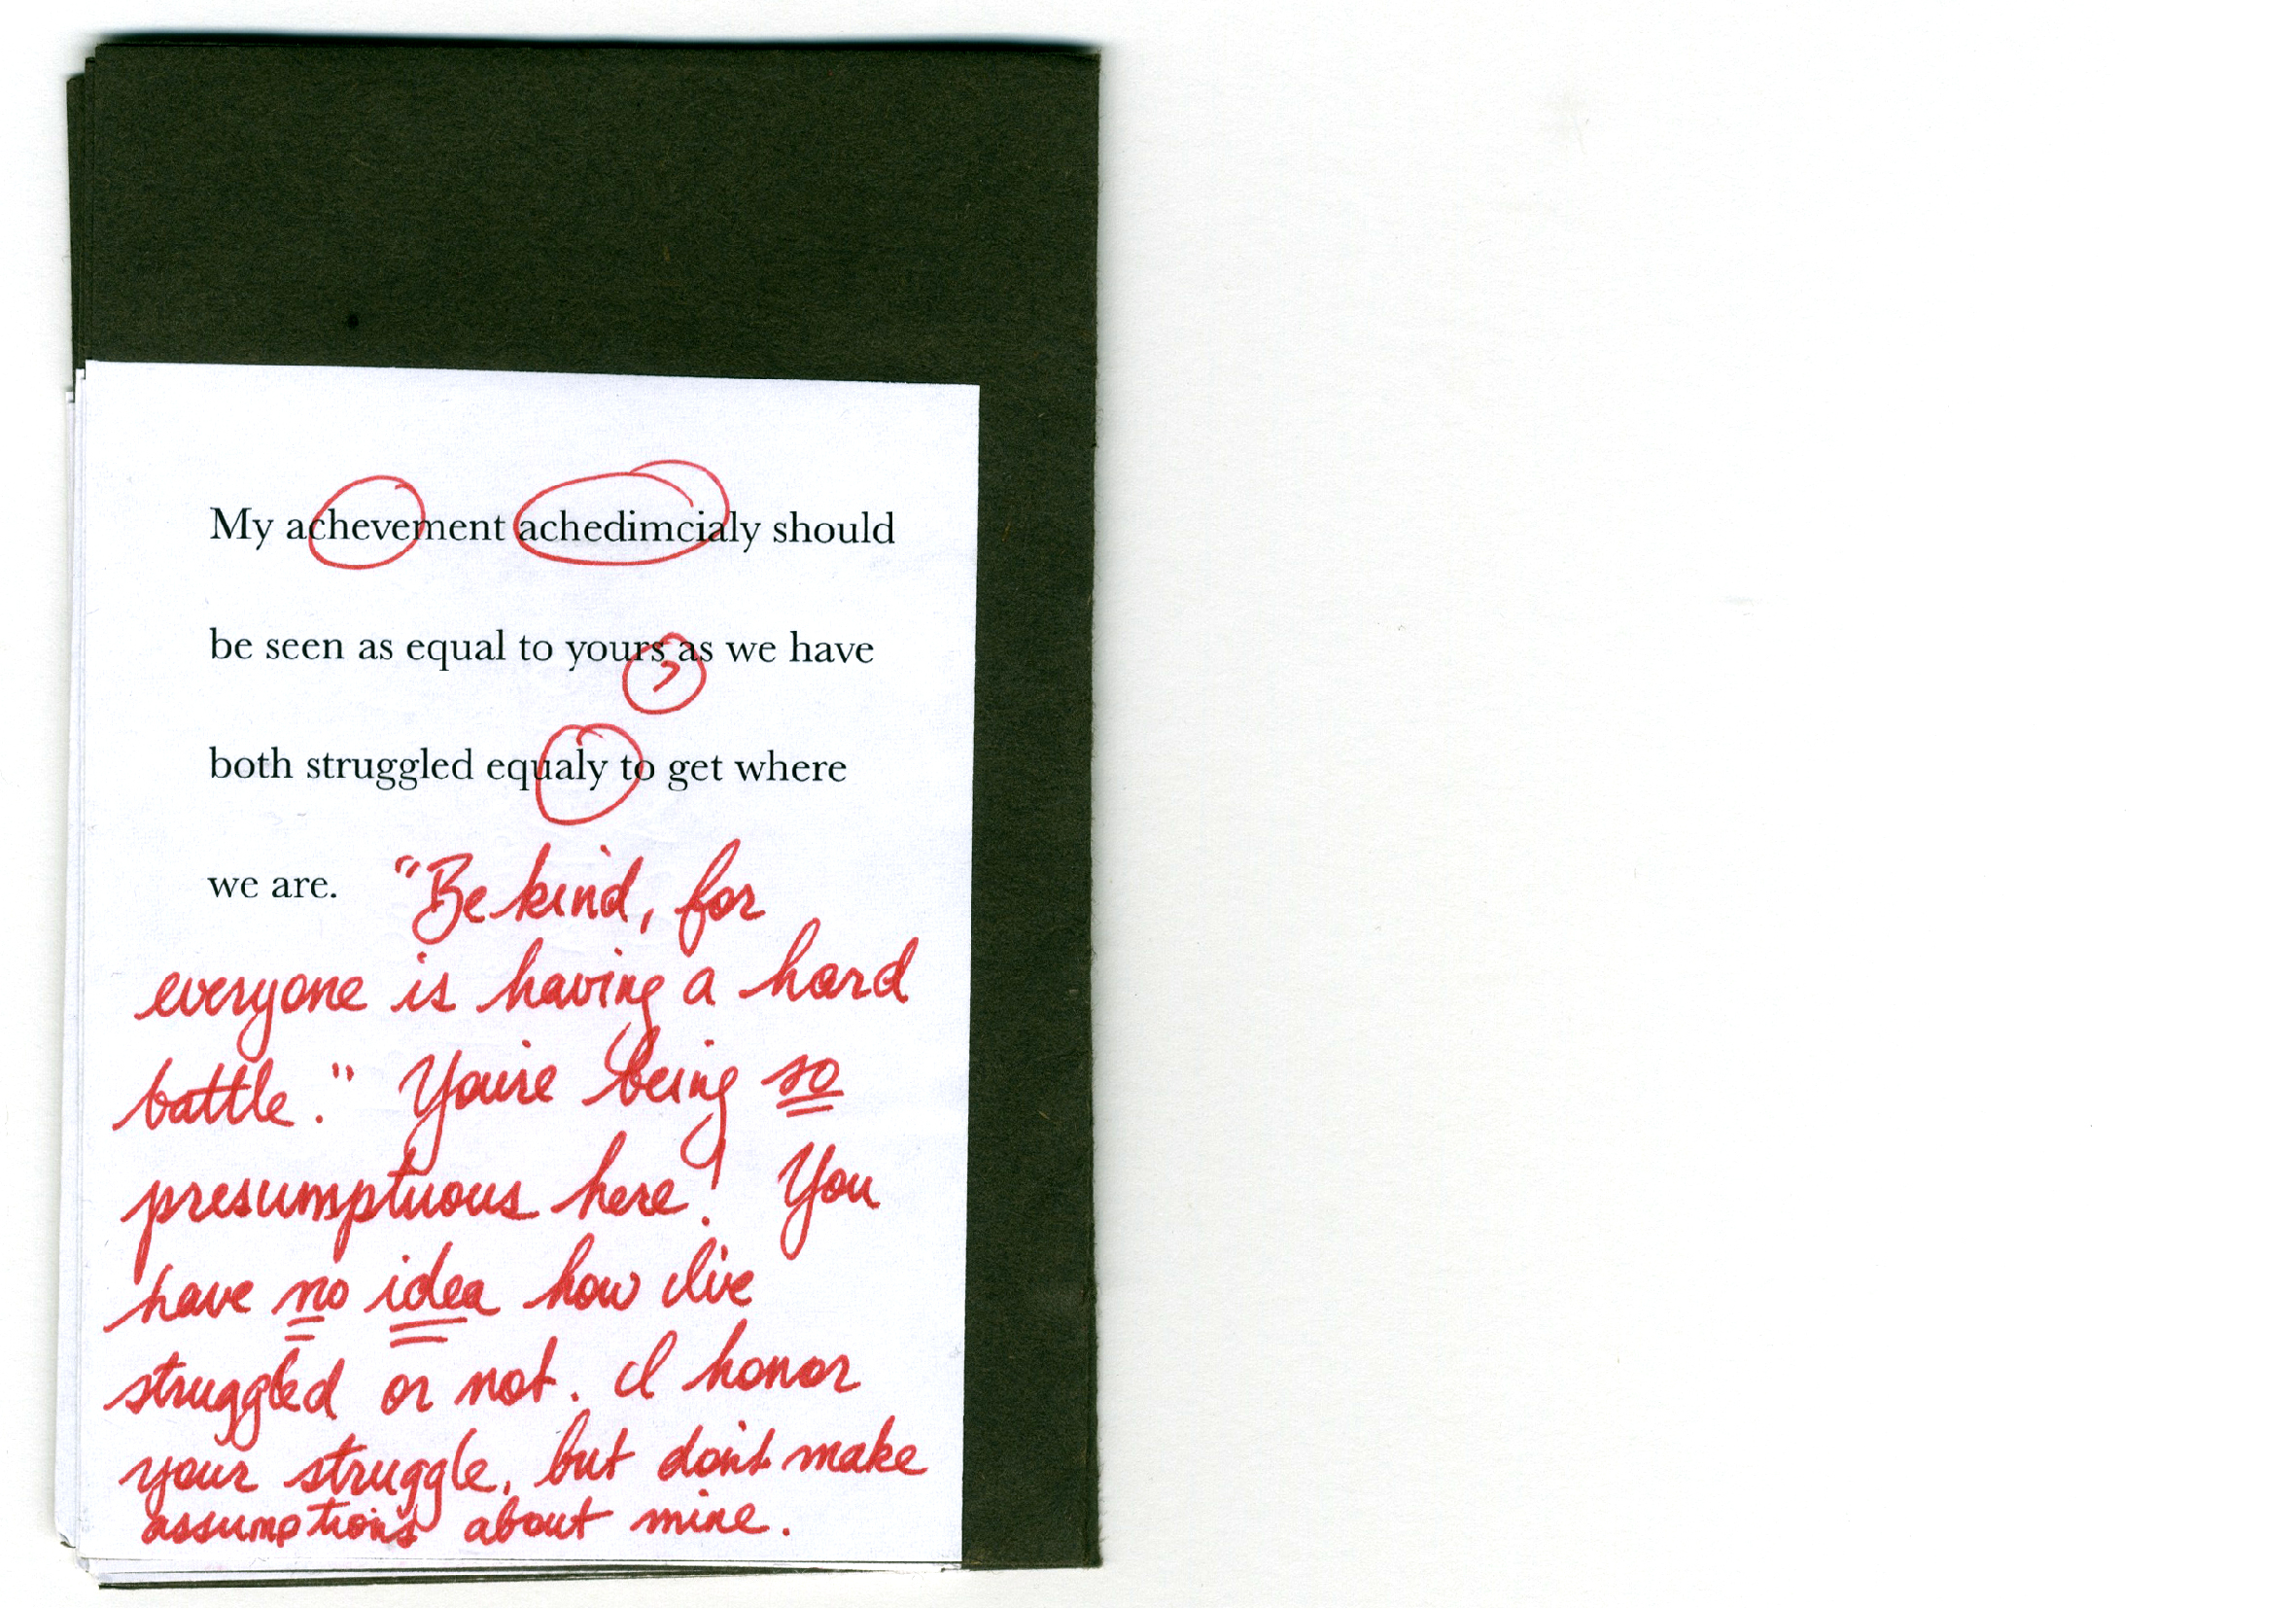 My achevement achedimcialy should
be seen as equal to yours, as we have
both struggled equaly to get where
we are. "Be kind, for
everyone is having a hard
battle." You're being so
presumptuous here! You
have no idea how I've
struggled or not. I honor
your struggle, but don't make
assumptions about mine.